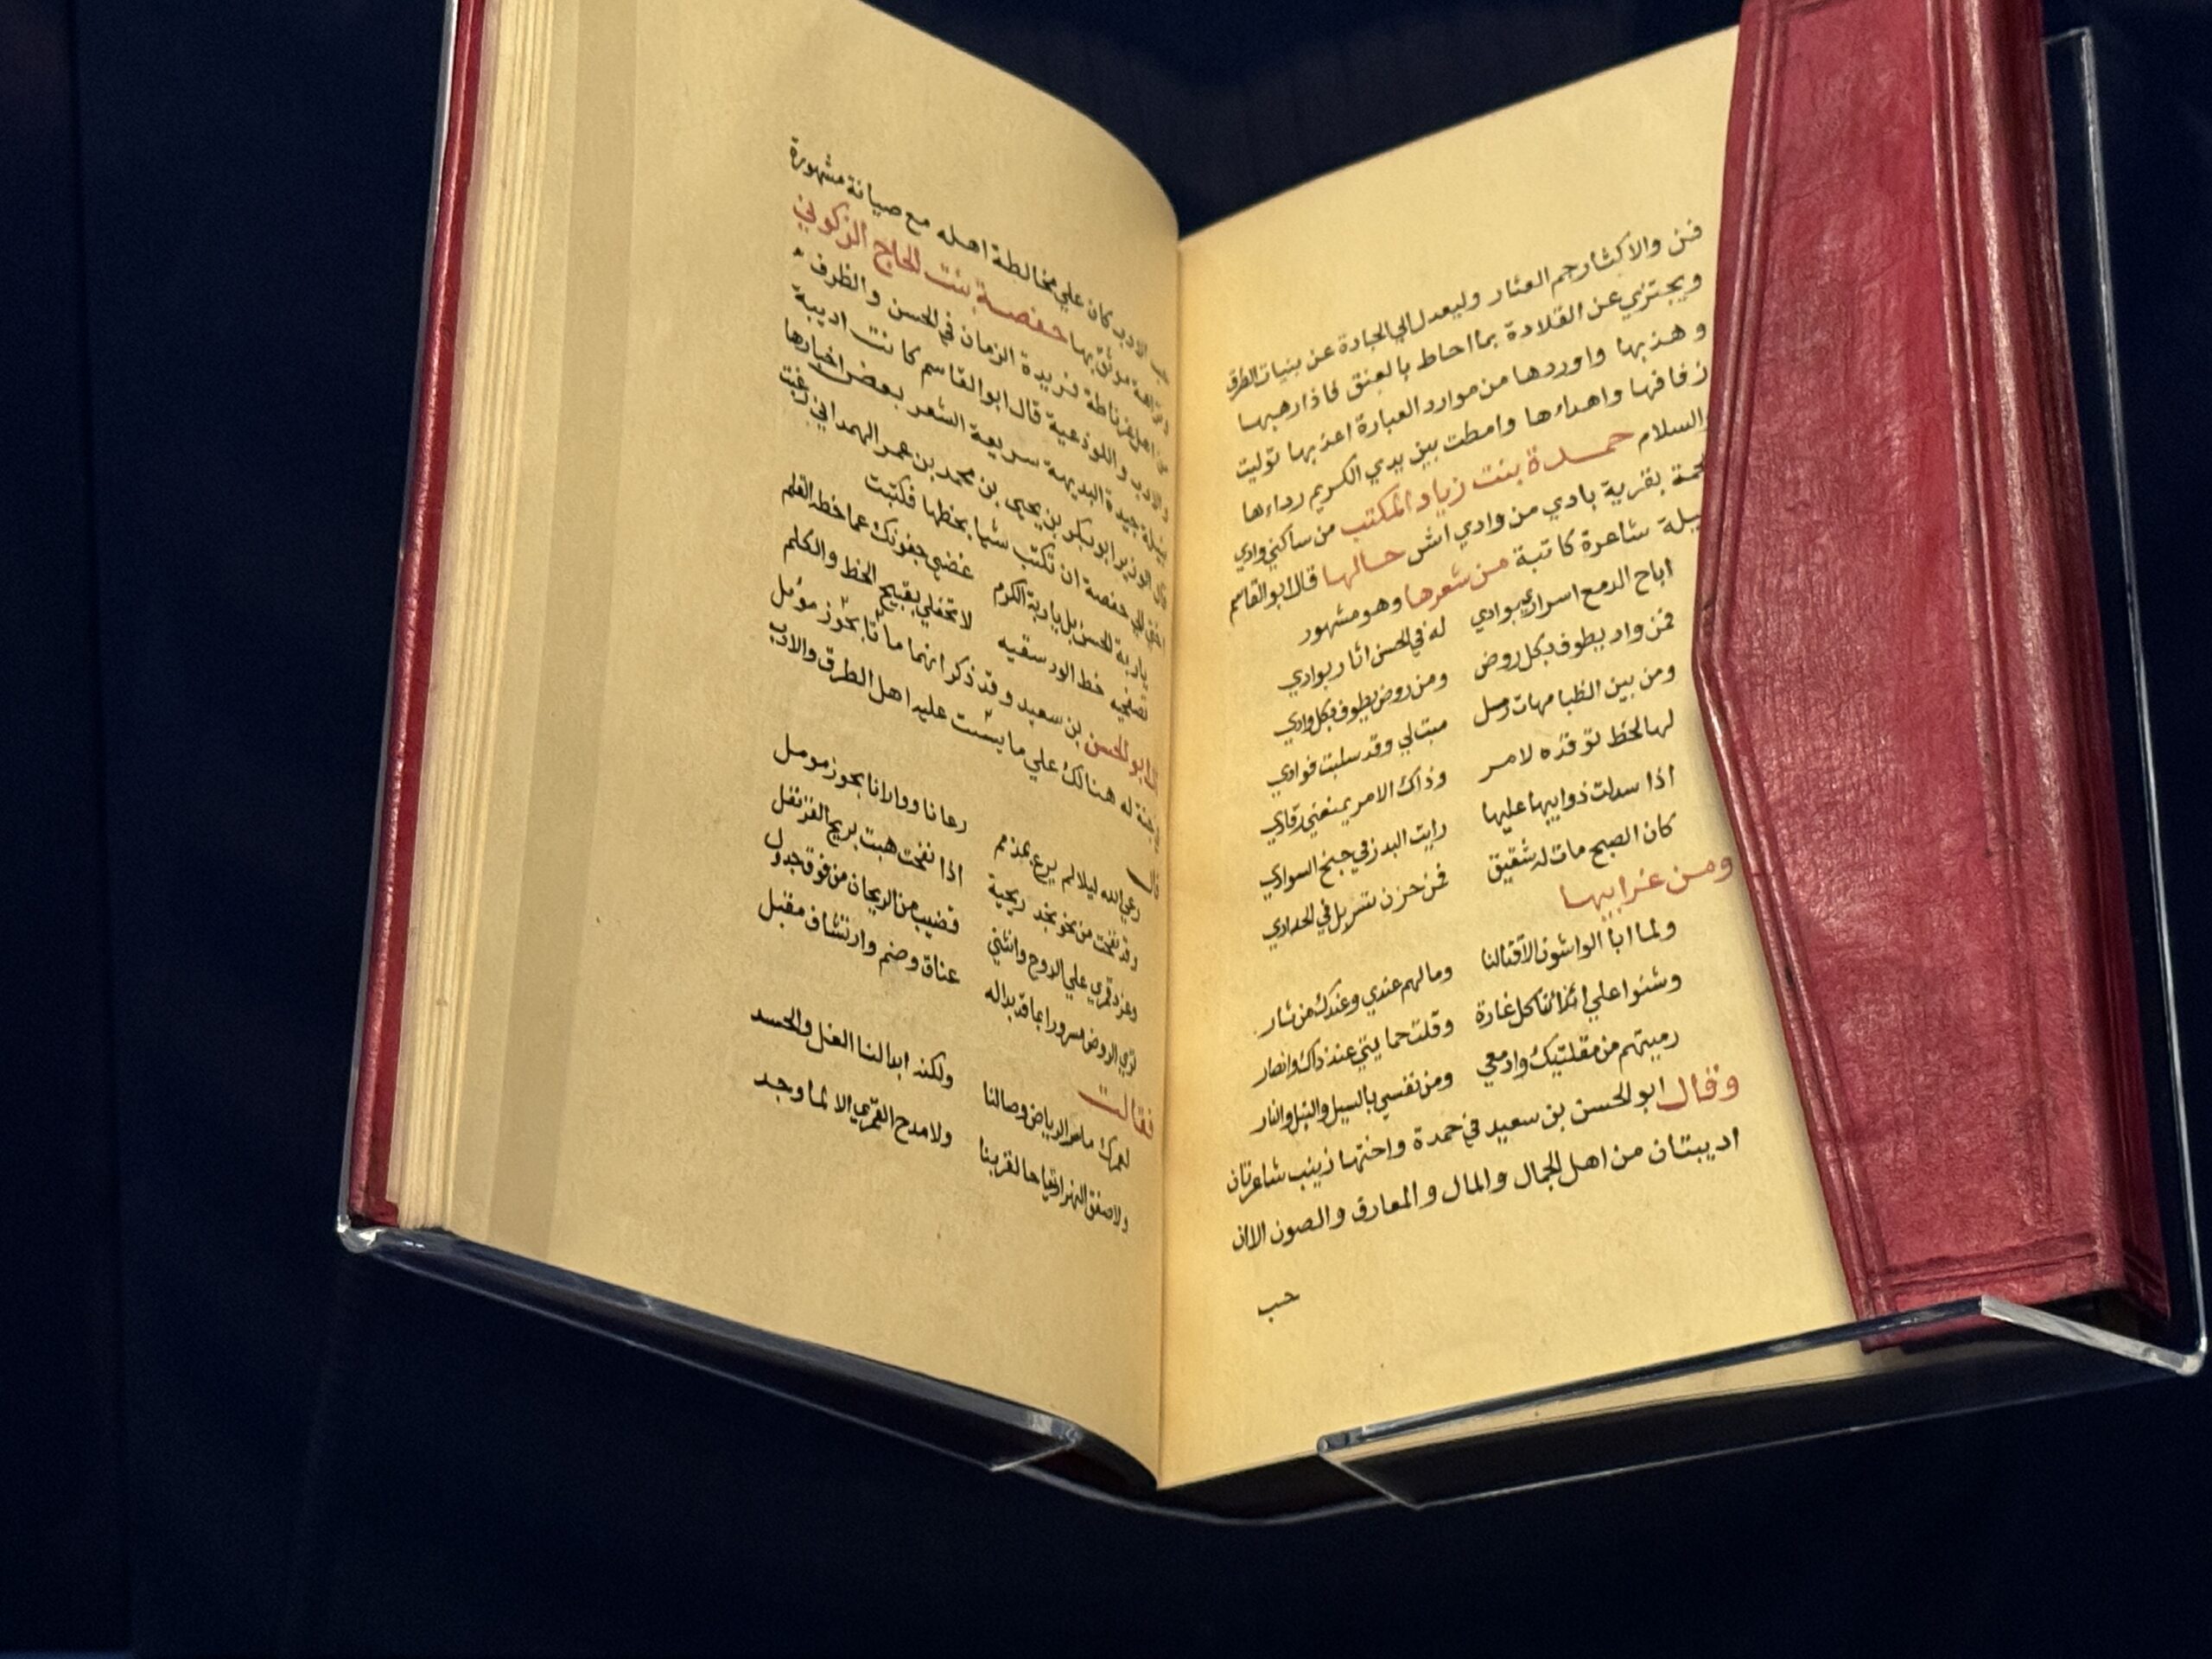 فنن والاكثار جم العثار وليعدل الي الجادة عن بنيات الطرق
ويجتزي عن القلادة بما احاط بالعنق فاذا رهبها
وهذبها واوردها من موارد العبارة اعذبها توليت
زفافها واهداءها وامطت بين يدي الكريم رداءها
والسلام حمدة بنت زياد المكتب من ساكني وادي
بقرية بادي من وادي اش حالها قال ابو القاسم
شاعرة كاتبة من شعرها وهو مشهور
اباح الدمع اسراري بوادي له في الحسن اثار بوادي
فمن واد يطوف بكل روض ومن روض يطوف بكل وادي
ومن بين الظبا مهات رمل سبت لبي وقد سلبت فوادي
لها لحظ توقده لامر وذاك الامر يمنعني رقادي
اذا سدلت ذوايبها عليها رايت البدر في جنح السوادي
كان الصبح مات له شقيق فمن حزن تسربل في الحدادي
ومن غرايبها
ولما ابا الواشون الا قتالنا وما لهم عندي وعندك من ثار
وشنوا علي كل غارة وقلت حمايتي عند ذاك وانصار
رميتهم من مقلتيك وادمعي ومن نفسي بالسيل والنبل والنار
وقال ابو الحسن بن سعيد في حمدة واختها زينب شاعرتان
اديبتان من اهل الجمال والمال والمعارف والصون الا ان
حب
حب الادب كان علي مخالطة اهله مع صيانة مشهورة
موثق بها حفصة بنت الحاج الركوني
من اهل غرناطة فريدة الزمان في الحسن والظرف
والادب واللوذعية قال ابو القاسم كانت اديبة
نبيلة جيدة البديهة سريعة الشعر بعض اخبارها
الوزير ابو بكر بن يحيى بن محمد بن عمر الهمداني رغبت
اختي الي حفصة ان تكتب شيا بخطها فكتبت
ياربة الحسن بل ياربة الكرم غضي جفونك عما خطه القلم
تصفحيه خط الود سقيه لا تحفلي بقبيح الخط والكلم
ابو الحسن بن سعيد وقد ذكر انهما ماتا بحوز مومل
جنة له هنالك علي ما يبيت عليه اهل الطرق والادب
قال
رعي الله ليلا لم يرع بمذمم رعانا ووارانا بحوز مومل
وقد نفحت من نحو نجد ريحية اذا نفحت هبت بريح القرنفل
وغرد قمري علي الدوح وانثني قضيب من الريحان من فوق جدول
تري الروض مسرورا بما قد بدا له عناق وضم وارتشاف مقبل
فقالت
لعمرك ما سر الرياض وصالنا ولكنه ابدا لنا الغل والحسد
ولا صفق النهر ارتياحا لقربنا ولا صدح القمري الا لما وجد